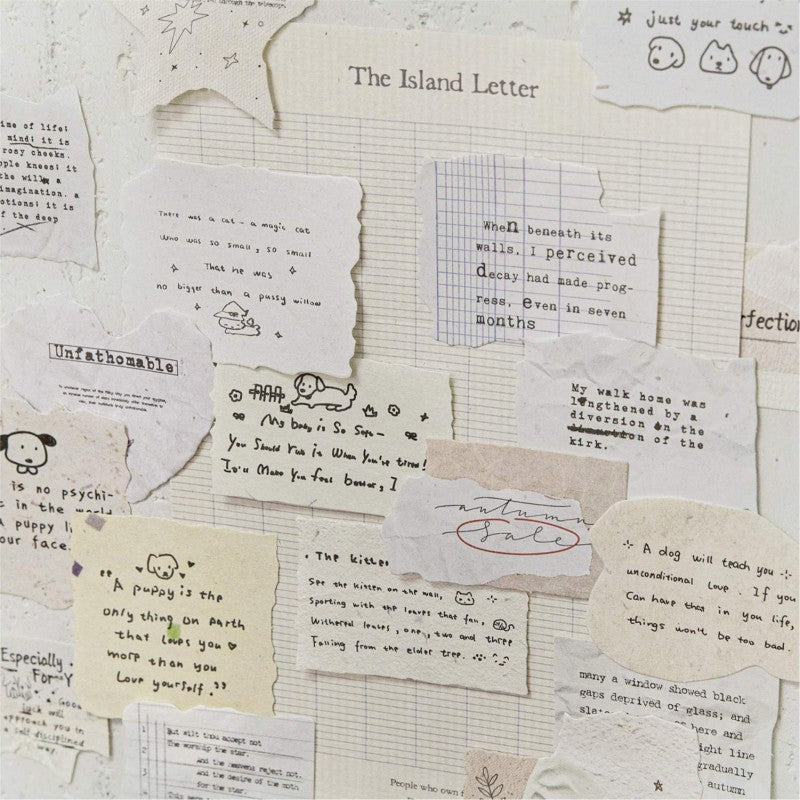 just your touch
The Island Letter
me of life;
mind; it is
rosy cheeks.
ple knees; it
the will, a
imagination. a
otions; it is
f the deep
There was a cat - a magic cat
Who was so small, so small
That he was
no bigger than a pussy willow
When beneath its
walls, I perceived
decay had made prog-
ress, even in seven
months
rfection
Unfathomable
My walk home was
lengthened by a
diversion in the
of the
kirk.
My body is so soft-
You should rub it when you're tired!
I'll make you feel better, I
is no psychi-
t in the world
a puppy li
our face.
autumn
Sale
A dog will teach you
unconditional love. If you
Can have that in your life,
things won't be too bad.
"A puppy is the
only thing on earth
that loves you
more than you
Love yourself."
The kitten
See the kitten on the wall,
Sporting with the leaves that fall,
Withered leaves, one, two and three
Falling from the elder tree.
Especially
For Y
Good
luck will
approach you in
a self disciplined
way.
many a window showed black
gaps deprived of glass; and
slates here and
ight line
gradually
autumn
1 But wilt thou accept not
2 The worship the star.
3 And the heavens reject not.
4 And the desire of the moth
for the star.
People who own